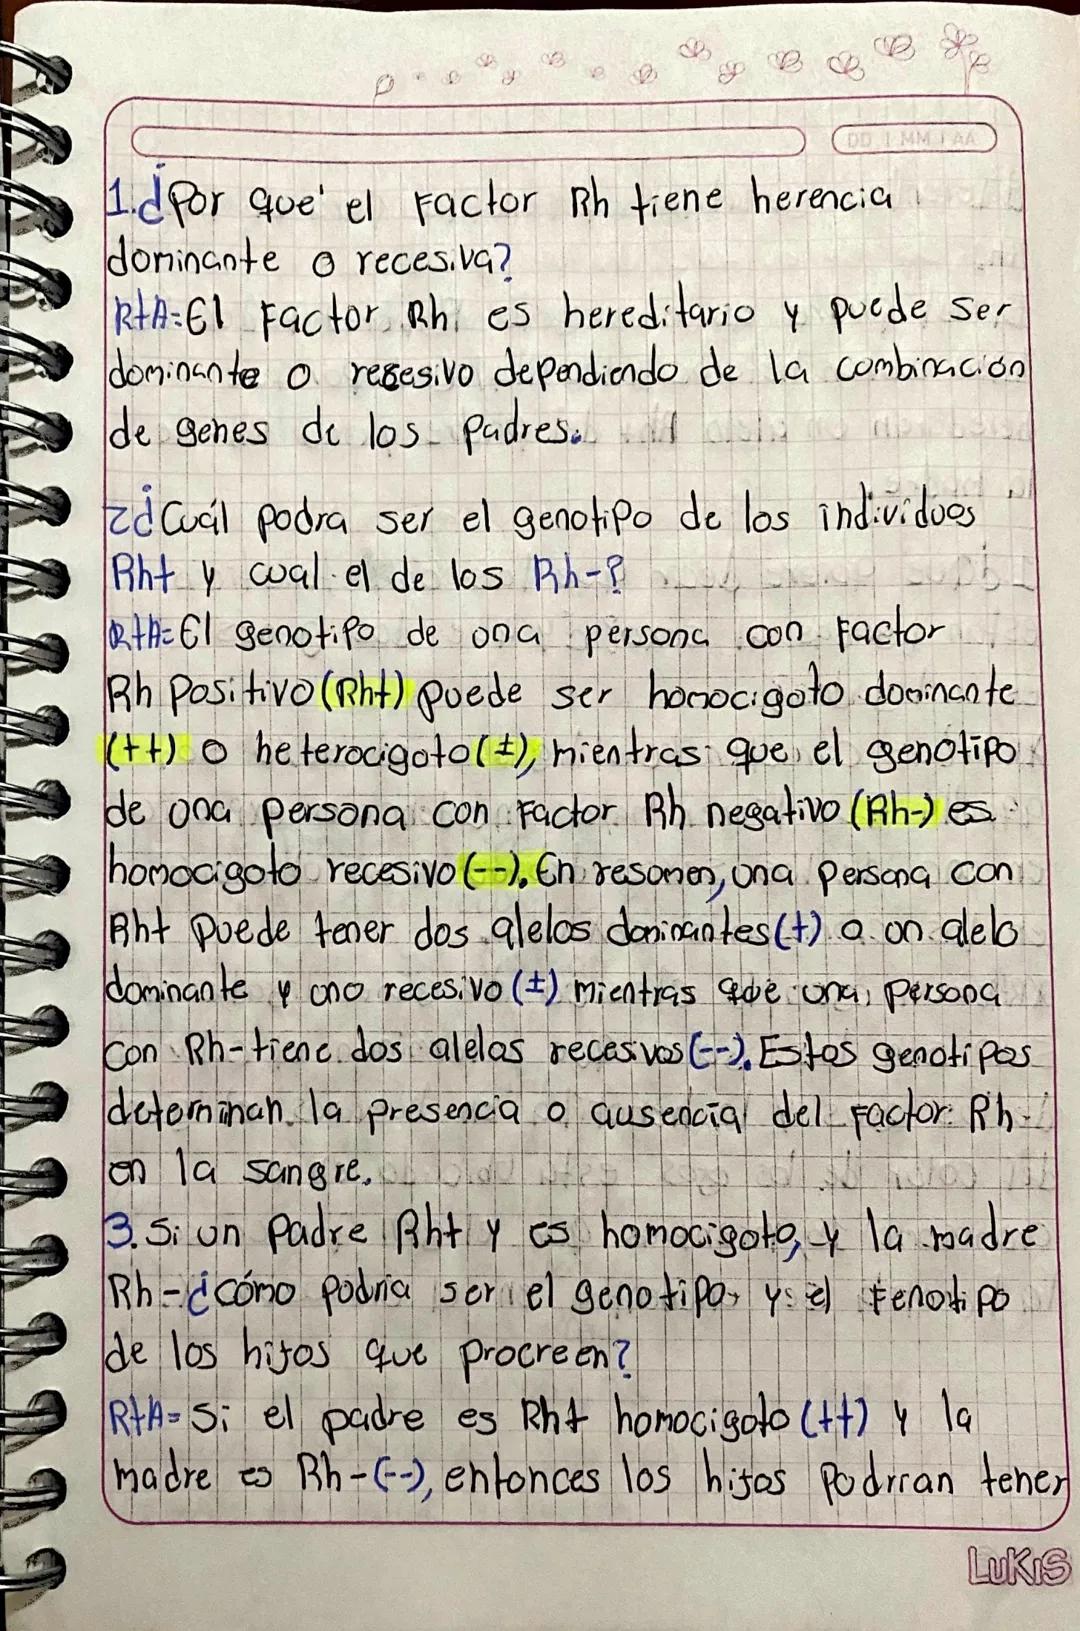 DD | MM | AA
1.¿Por que' el Factor Rh tiene herencia
dominante o recesiva?
RtA=El Factor Rh es hereditario y puede ser
dominante o resesivo dependiendo de la combinación
de genes de los padres.
2¿Cuál podra ser el genotipo de los individuos
Rh+ y cual el de los Rh-?
RtA=El genotipo de una persona con Factor
Rh Positivo (Rh+) puede ser homocigoto dominante
(++) o heterocigoto (±), mientras que el genotipo
de una persona con Factor Rh negativo (Rh-) es
homocigoto recesivo (--). En resumen, una persona con
Rh+ Puede tener dos alelos dominantes (+) o un alelo
dominante y uno recesivo (±) mientras que una persona
con Rh- tiene dos alelos recesivos (--). Estos genotipos
determinan la presencia o ausencia del Factor Rh
en la sangre.
3. Si un Padre Rh+ y es homocigoto, y la madre
Rh- ¿cómo podria ser el genotipo y el Fenotipo
de los hijos que procreen?
RtA= Si el padre es Rh+ homocigoto (++) y la
madre es Rh- (--), entonces los hijos Podrian tener
LUKIS